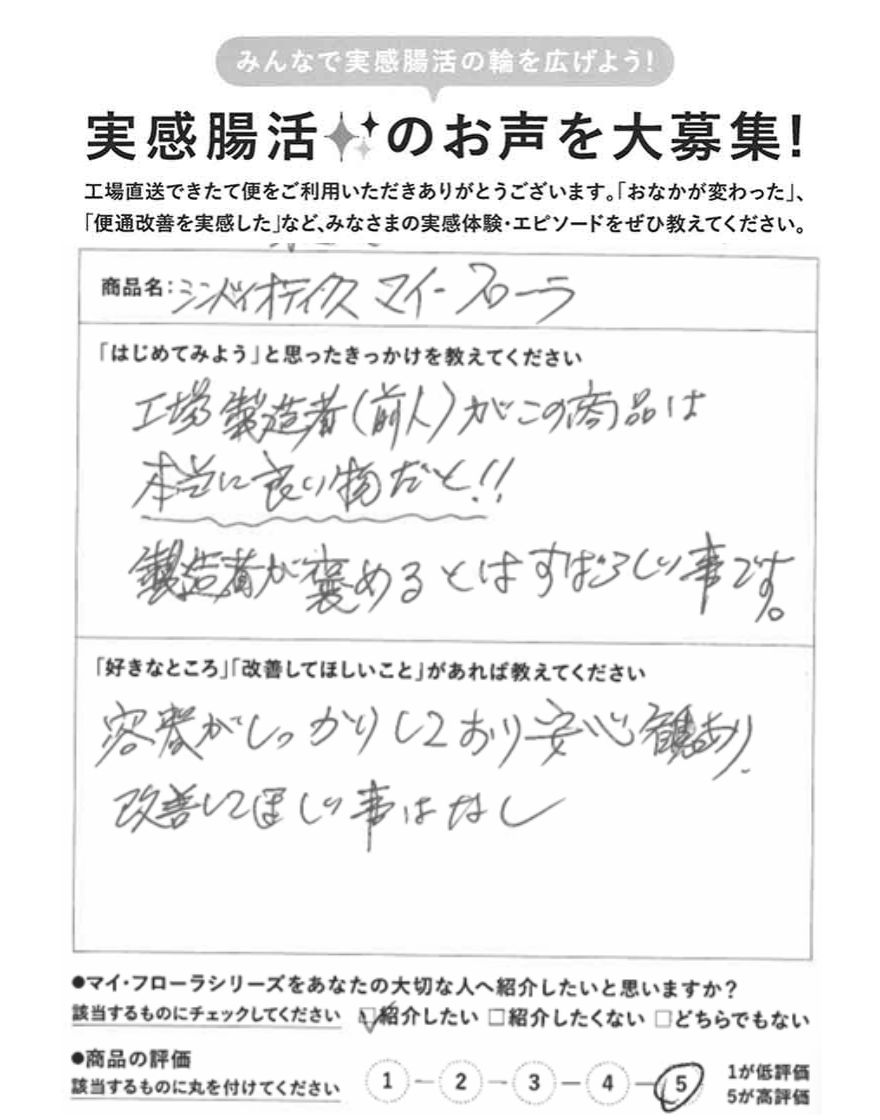 みんなで実感腸活の輪を広げよう!
実感腸活のお声を大募集!
工場直送できたて便をご利用いただきありがとうございます。「おなかが変わった」、
「便通改善を実感した」など、みなさまの実感体験・エピソードをぜひ教えてください。
商品名:シンバイオティクス マイーフローラ
「はじめてみよう」と思ったきっかけを教えてください
工場製造者(前人)がこの商品は
本当に良い物だと!!
製造者が褒めるとはすばらしい事です。
「好きなところ」「改善してほしいこと」があれば教えてください
がしっかりしており安心観あり
改善してほしい事はなし
●マイ・フローラシリーズをあなたの大切な人へ紹介したいと思いますか?
該当するものにチェックしてください ☑紹介したい □紹介したくない □どちらでもない
●商品の評価
該当するものに丸を付けてください 1 - 2 - 3 - 4 - 5
1が低評価
5が高評価